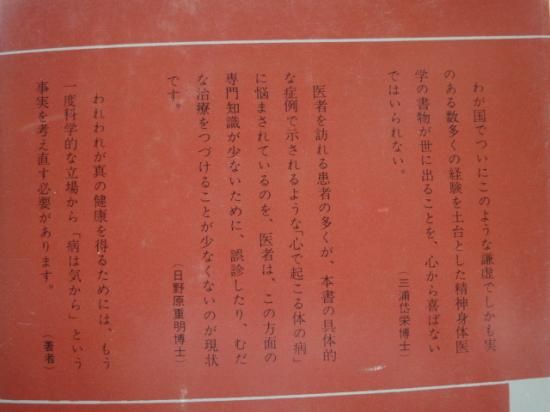 わが国でついにこのような謙虚でしかも実
のある数多くの経験を土台とした精神身体医
学の書物が世に出ることを、心から喜ばない
ではいられない。
（三浦岱栄博士）
医者を訪れる患者の多くが、本書の具体的
な症例で示されるような「心で起こる体の病」
に悩まされているのを、医者は、この方面の
専門知識が少ないために、誤診したり、むだ
な治療をつづけることが少なくないのが現状
です。
（日野原重明博士）
われわれが真の健康を得るためには、もう
一度科学的な立場から「病は気から」という
事実を考え直す必要があります。
（著者）